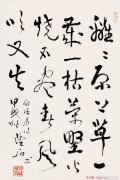 離離原上草一
歲一枯榮野火
燒不盡春風
吹又生